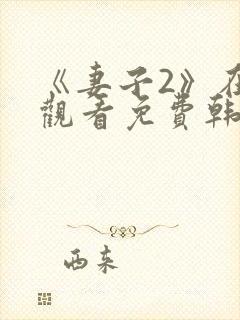 《妻子2》在
觀看免費韩
西来